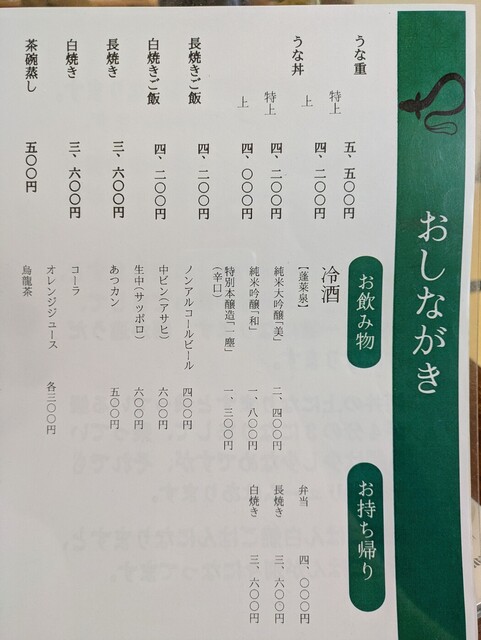 おしながき
うな重
特上 五、五〇〇円
上 四、二〇〇円
うな丼
特上 四、二〇〇円
上 四、〇〇〇円
長焼きご飯 四、二〇〇円
白焼きご飯 四、二〇〇円
長焼き 三、六〇〇円
白焼き 三、六〇〇円
茶碗蒸し 五〇〇円
お飲み物
冷酒
【蓬莱泉】
純米大吟醸「美」 二、四〇〇円
純米吟醸「和」 一、八〇〇円
特別本醸造「一塵」 一、三〇〇円
(辛口)
ノンアルコールビール 四〇〇円
中ビン(アサヒ) 六〇〇円
生中(サッポロ) 六〇〇円
あつカン 五〇〇円
コーラ
オレンジジュース 各三〇〇円
烏龍茶
お持ち帰り
弁当 四、〇〇〇円
長焼き 三、六〇〇円
白焼き 三、六〇〇円